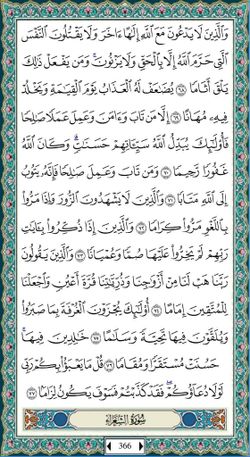 وَٱلَّذِينَ لَا يَدْعُونَ مَعَ ٱللَّهِ إِلَٰهًا ءَاخَرَ وَلَا يَقْتُلُونَ ٱلنَّفْسَ
ٱلَّتِي حَرَّمَ ٱللَّهُ إِلَّا بِٱلْحَقِّ وَلَا يَزْنُونَ ۚ وَمَن يَفْعَلْ ذَٰلِكَ
يَلْقَ أَثَامًا ٦٨ يُضَٰعَفْ لَهُ ٱلْعَذَابُ يَوْمَ ٱلْقِيَٰمَةِ وَيَخْلُدْ
فِيهِۦ مُهَانًا ٦٩ إِلَّا مَن تَابَ وَءَامَنَ وَعَمِلَ عَمَلًا صَٰلِحًا
فَأُو۟لَٰٓئِكَ يُبَدِّلُ ٱللَّهُ سَيِّـَٔاتِهِمْ حَسَنَٰتٍ ۗ وَكَانَ ٱللَّهُ
غَفُورًا رَّحِيمًا ٧٠ وَمَن تَابَ وَعَمِلَ صَٰلِحًا فَإِنَّهُۥ يَتُوبُ
إِلَى ٱللَّهِ مَتَابًا ٧١ وَٱلَّذِينَ لَا يَشْهَدُونَ ٱلزُّورَ وَإِذَا مَرُّوا۟
بِٱللَّغْوِ مَرُّوا۟ كِرَامًا ٧٢ وَٱلَّذِينَ إِذَا ذُكِّرُوا۟ بِـَٔايَٰتِ
رَبِّهِمْ لَمْ يَخِرُّوا۟ عَلَيْهَا صُمًّا وَعُمْيَانًا ٧٣ وَٱلَّذِينَ يَقُولُونَ
رَبَّنَا هَبْ لَنَا مِنْ أَزْوَٰجِنَا وَذُرِّيَّٰتِنَا قُرَّةَ أَعْيُنٍ وَٱجْعَلْنَا
لِلْمُتَّقِينَ إِمَامًا ٧٤ أُو۟لَٰٓئِكَ يُجْزَوْنَ ٱلْغُرْفَةَ بِمَا صَبَرُوا۟
وَيُلَقَّوْنَ فِيهَا تَحِيَّةً وَسَلَٰمًا ٧٥ خَٰلِدِينَ فِيهَا ۚ
حَسُنَتْ مُسْتَقَرًّا وَمُقَامًا ٧٦ قُلْ مَا يَعْبَؤُا۟ بِكُمْ رَبِّي
لَوْلَا دُعَآؤُكُمْ ۖ فَقَدْ كَذَّبْتُمْ فَسَوْفَ يَكُونُ لِزَامًۢا ٧٧
سُورَةُ الشُّعَرَاءِ
366